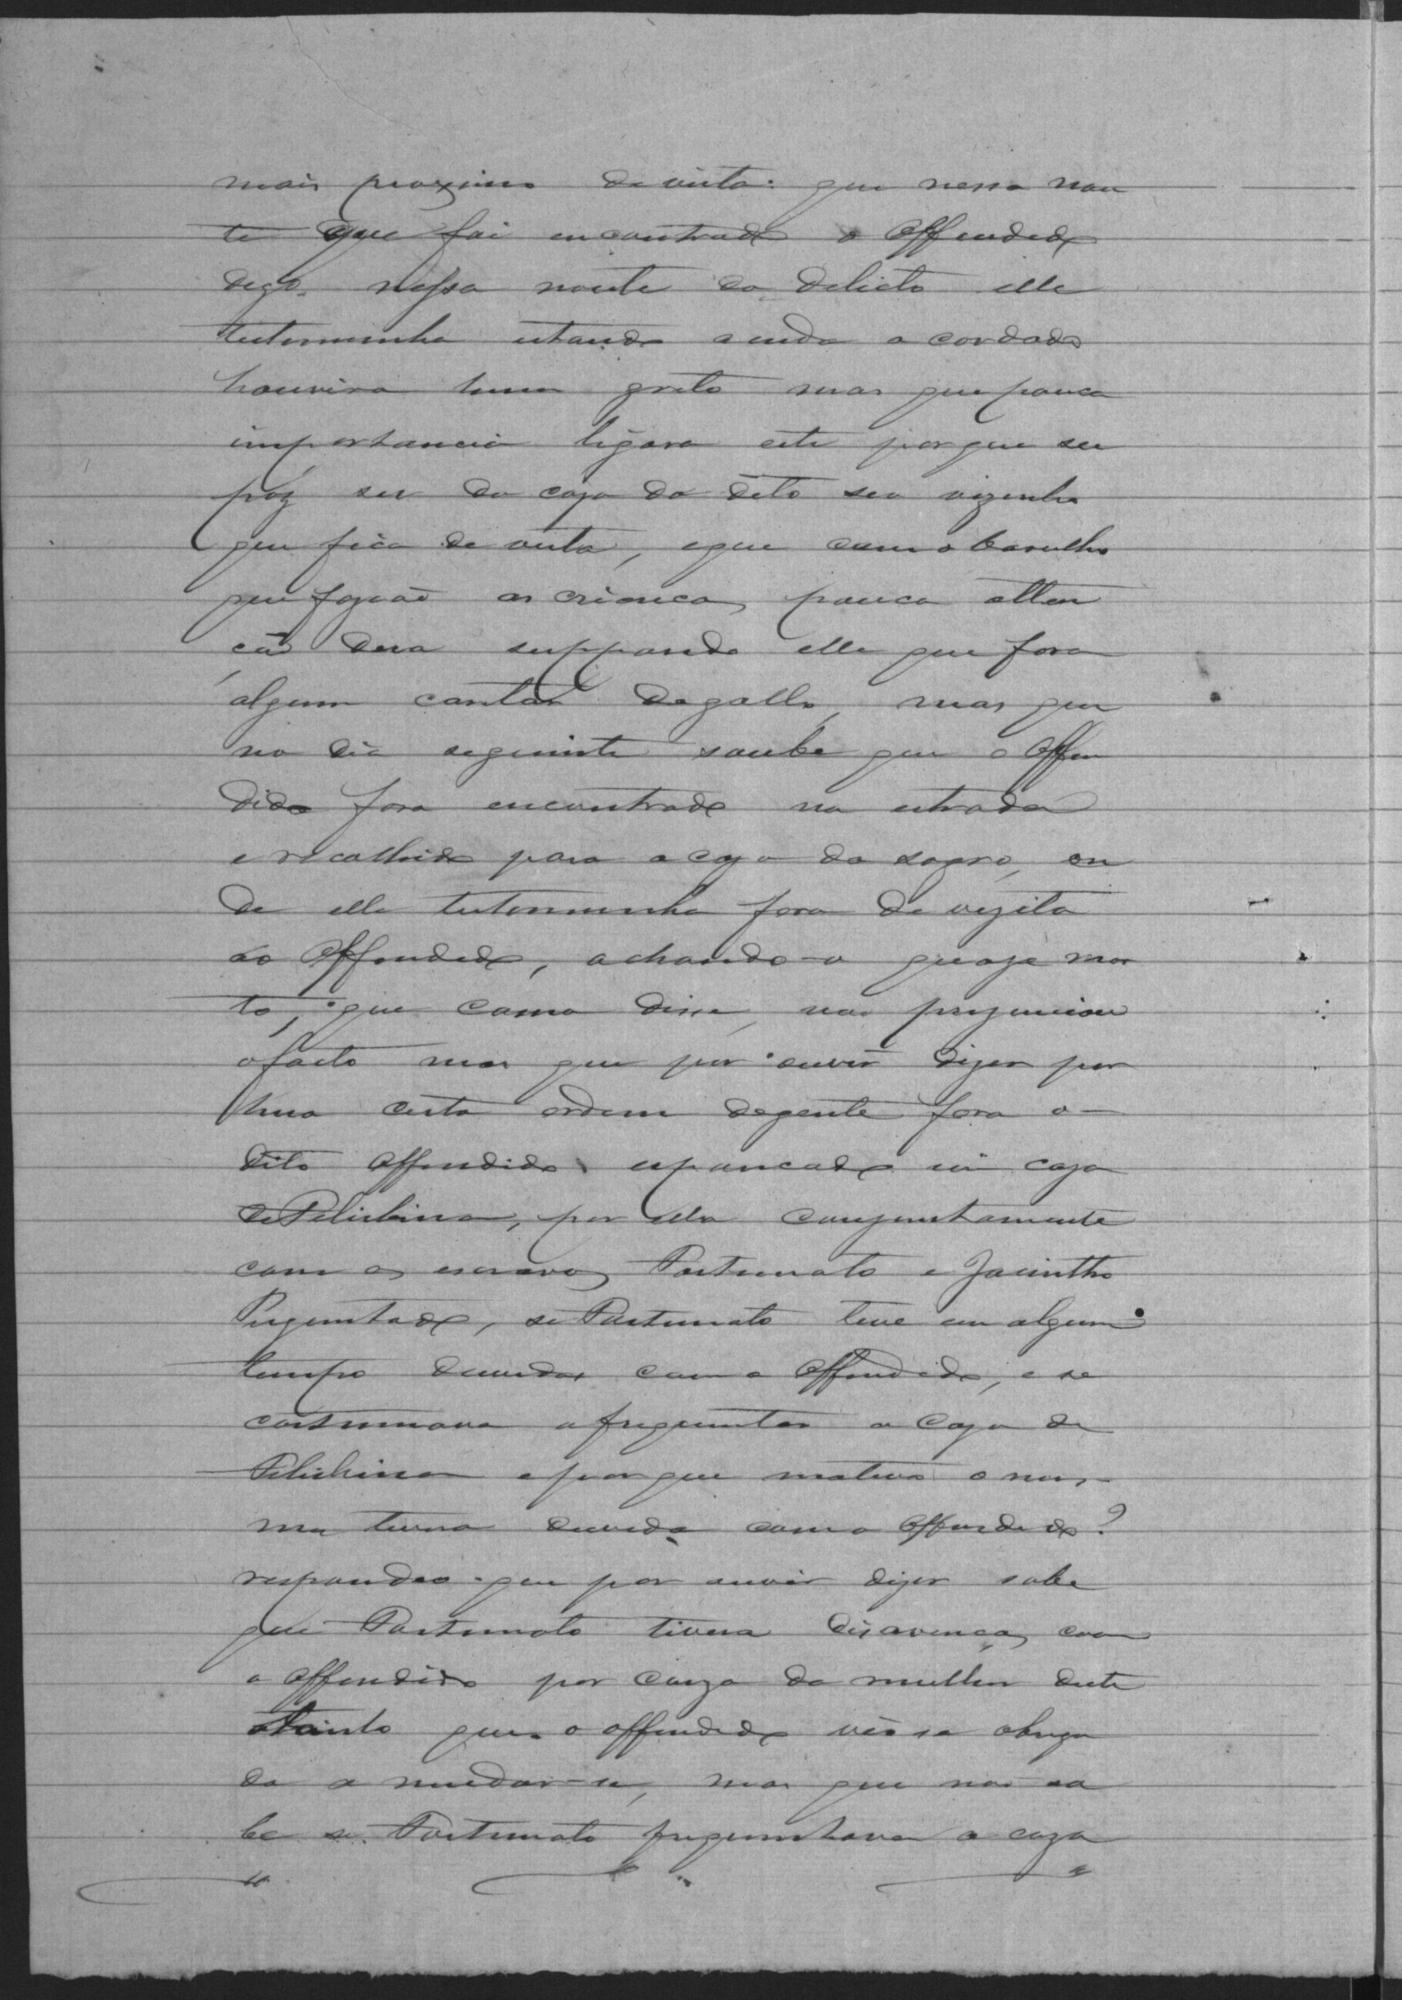 mais proximo de vista: que nessa nou
te que foi encontrado o offendido
digo, nessa noute do delicto elle
testemunha estando ainda acordado
houvira hum grito mas que pouca
importancia ligara este porque su
poz ser da caza do dito seo vizinho
que fica de vista, e que com o barulho
que fazião as crianças, pouca atten
ção dera suppondo elle que fora
algum cantar de gallo, mas que
no dia seguinte soube que o offen
dido fora encontrado na estrada
e recolhido para a caza do sogro, on
de elle testemunha fora de vizita
ao offendido, achando-o quaze mor
to, que como disse, não prezenciou
o facto mas que por ouvir dizer por
hua certa ordem de gente fora o
dito offendido espancado em caza
de Felisbina, por ella conjuntamente
com os escravos Fortunato e Jacintho
Perguntado, se Fortunato teve em algum
tempo duvidas com o offendido, e se
costumava a frequentar a caza de
Felisbina e por que motivo o mes-
mo tivera duvida com o offendido?
respondeo que por ouvir dizer sabe
que Fortunato tivera desavenças com
o offendido por cauza da mulher deste
tanto que o offendido vio se obriga
do a mudar-se, mas que não sa
be se Fortunato frequentava a caza